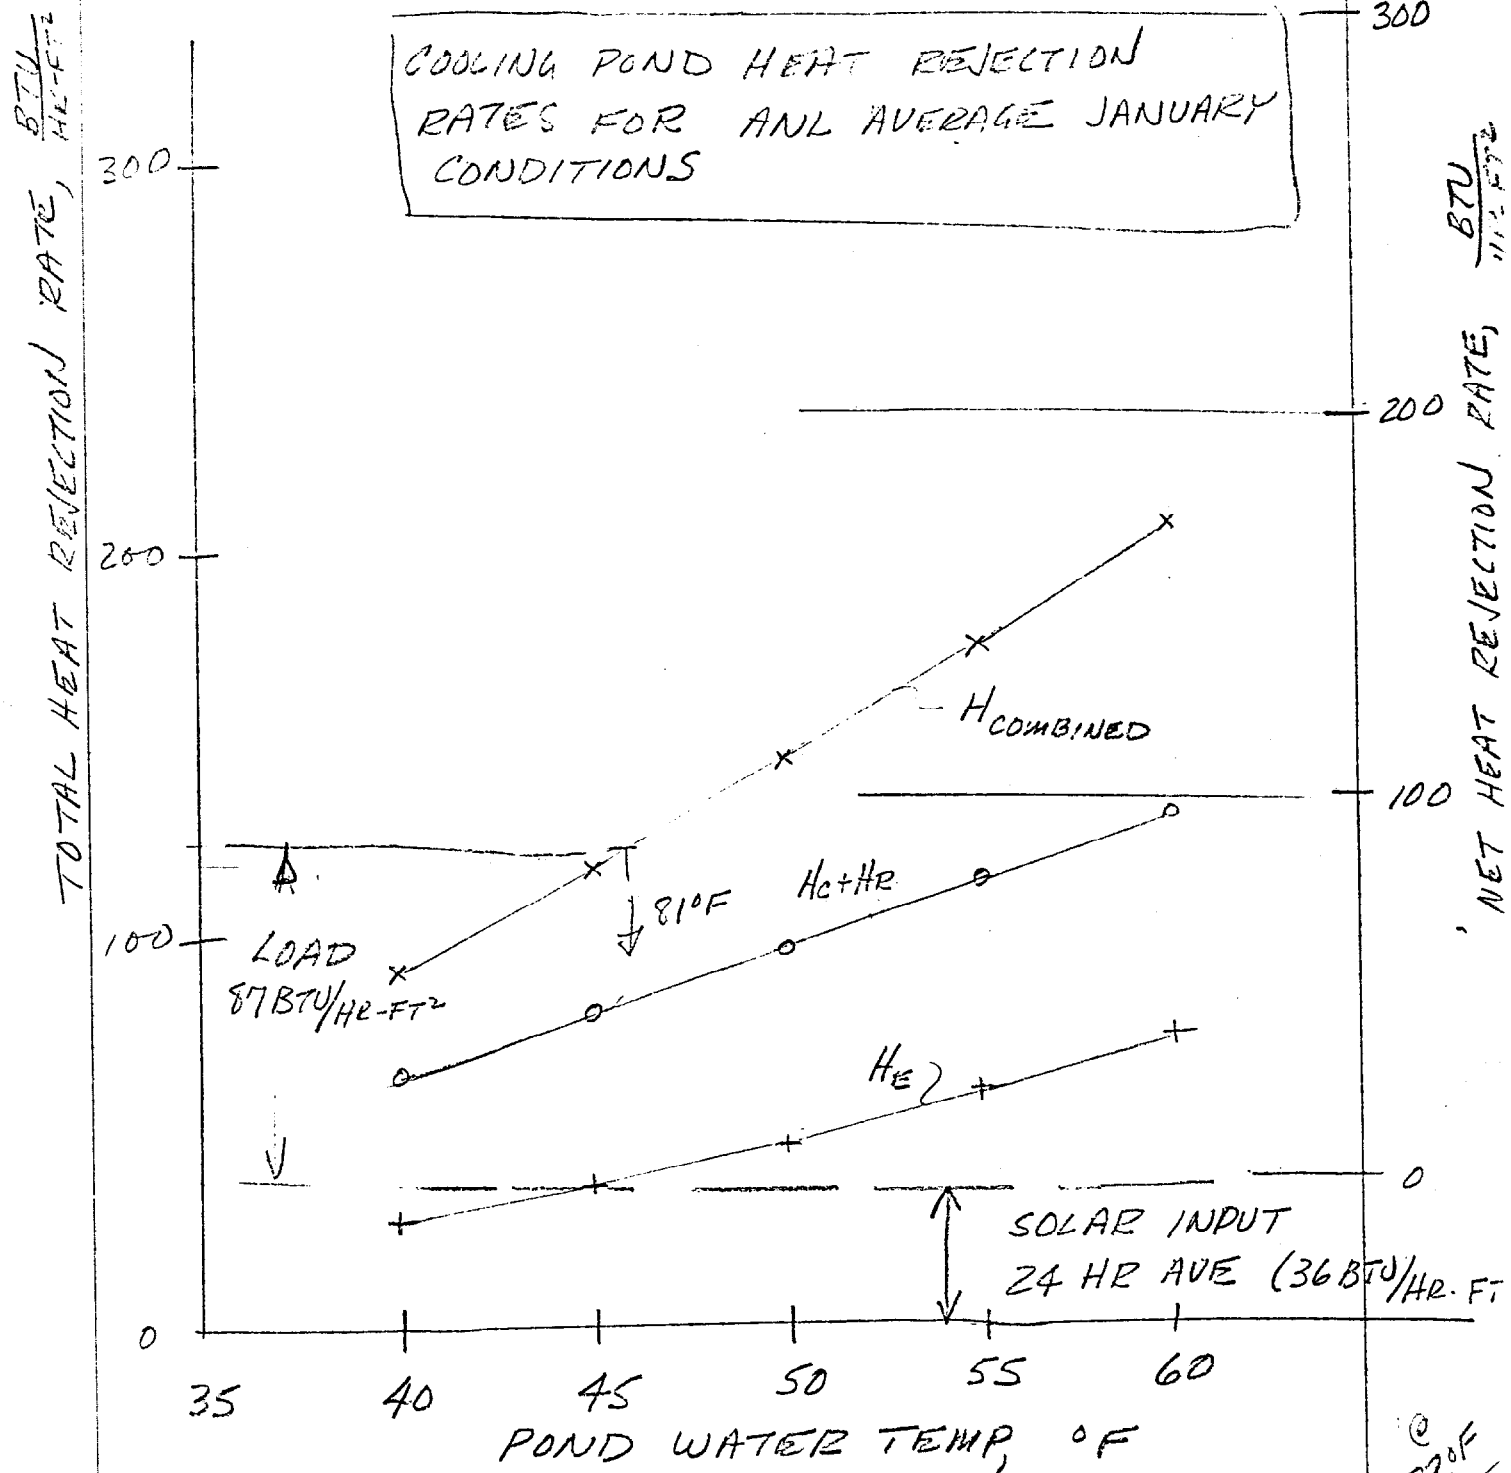 COOLING POND HEAT REJECTION
RATES FOR ANL AVERAGE JANUARY
CONDITIONS
TOTAL HEAT REJECTION RATE, BTU/HR-FT²
300
200
100
0
300
200
100
0
NET HEAT REJECTION RATE, BTU
H COMBINED
HC+HR
HE
81°F
LOAD
87 BTU/HR-FT²
SOLAR INPUT
24 HR AVE (36 BTU/HR-FT
35 40 45 50 55 60
POND WATER TEMP, °F
@